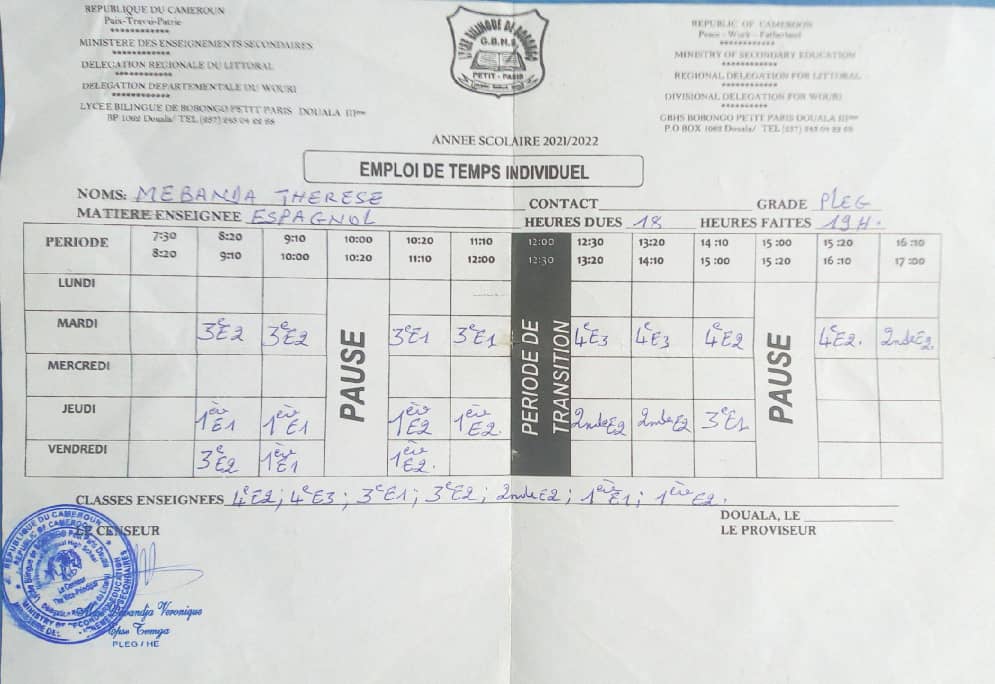 REPUBLIQUE DU CAMEROUN
Paix-Travail-Patrie
************
MINISTERE DES ENSEIGNEMENTS SECONDAIRES
************
DELEGATION REGIONALE DU LITTORAL
************
DELEGATION DEPARTEMENTALE DU WOURI
************
LYCEE BILINGUE DE BOBONGO PETIT PARIS DOUALA IIIeme
BP 1062 Douala/ TEL (237) 243 04 22 68
LYCEE BILINGUE DE BOBONGO
G.B.H.S
PETIT - PARIS
REPUBLIC OF CAMEROON
Peace - Work - Fatherland
************
MINISTRY OF SECONDARY EDUCATION
************
REGIONAL DELEGATION FOR LITTORAL
************
DIVISIONAL DELEGATION FOR WOURI
************
GBHS BOBONGO PETIT PARIS DOUALA IIIeme
P.O BOX 1062 Douala/ TEL (237) 243 04 22 68
ANNEE SCOLAIRE 2021/2022
EMPLOI DE TEMPS INDIVIDUEL
NOMS: MEBANDA THERESE CONTACT GRADE PLEG
MATIERE ENSEIGNEE ESPAGNOL HEURES DUES 18 HEURES FAITES 19H.
PERIODE 7:30 8:20 8:20 9:10 9:10 10:00 10:00 10:20 10:20 11:10 11:10 12:00 12:00 12:30 12:30 13:20 13:20 14:10 14:10 15:00 15:00 15:20 15:20 16:10 16:10 17:00
LUNDI
MARDI 3e E2 3e E2 3e E1 3e E1 4e E3 4e E3 4e E2 4e E2. 2nde E2
MERCREDI
JEUDI 1ère E1 1ère E1 1ère E2 1ère E2 2nde E2 2nde E2 3e E1
VENDREDI 3e E2 1ère E1 1ère E2.
PAUSE
PERIODE DE TRANSITION
PAUSE
CLASSES ENSEIGNEES 4e E2; 4e E3; 3e E1; 3e E2; 2nde E2; 1ère E1; 1ère E2.
DOUALA, LE
LE CENSEUR
LE PROVISEUR
REPUBLIQUE DU CAMEROUN
REPUBLIC OF CAMEROON
Le Censeur
The Vice Principal
Veronique
Temga
PLEG / HE